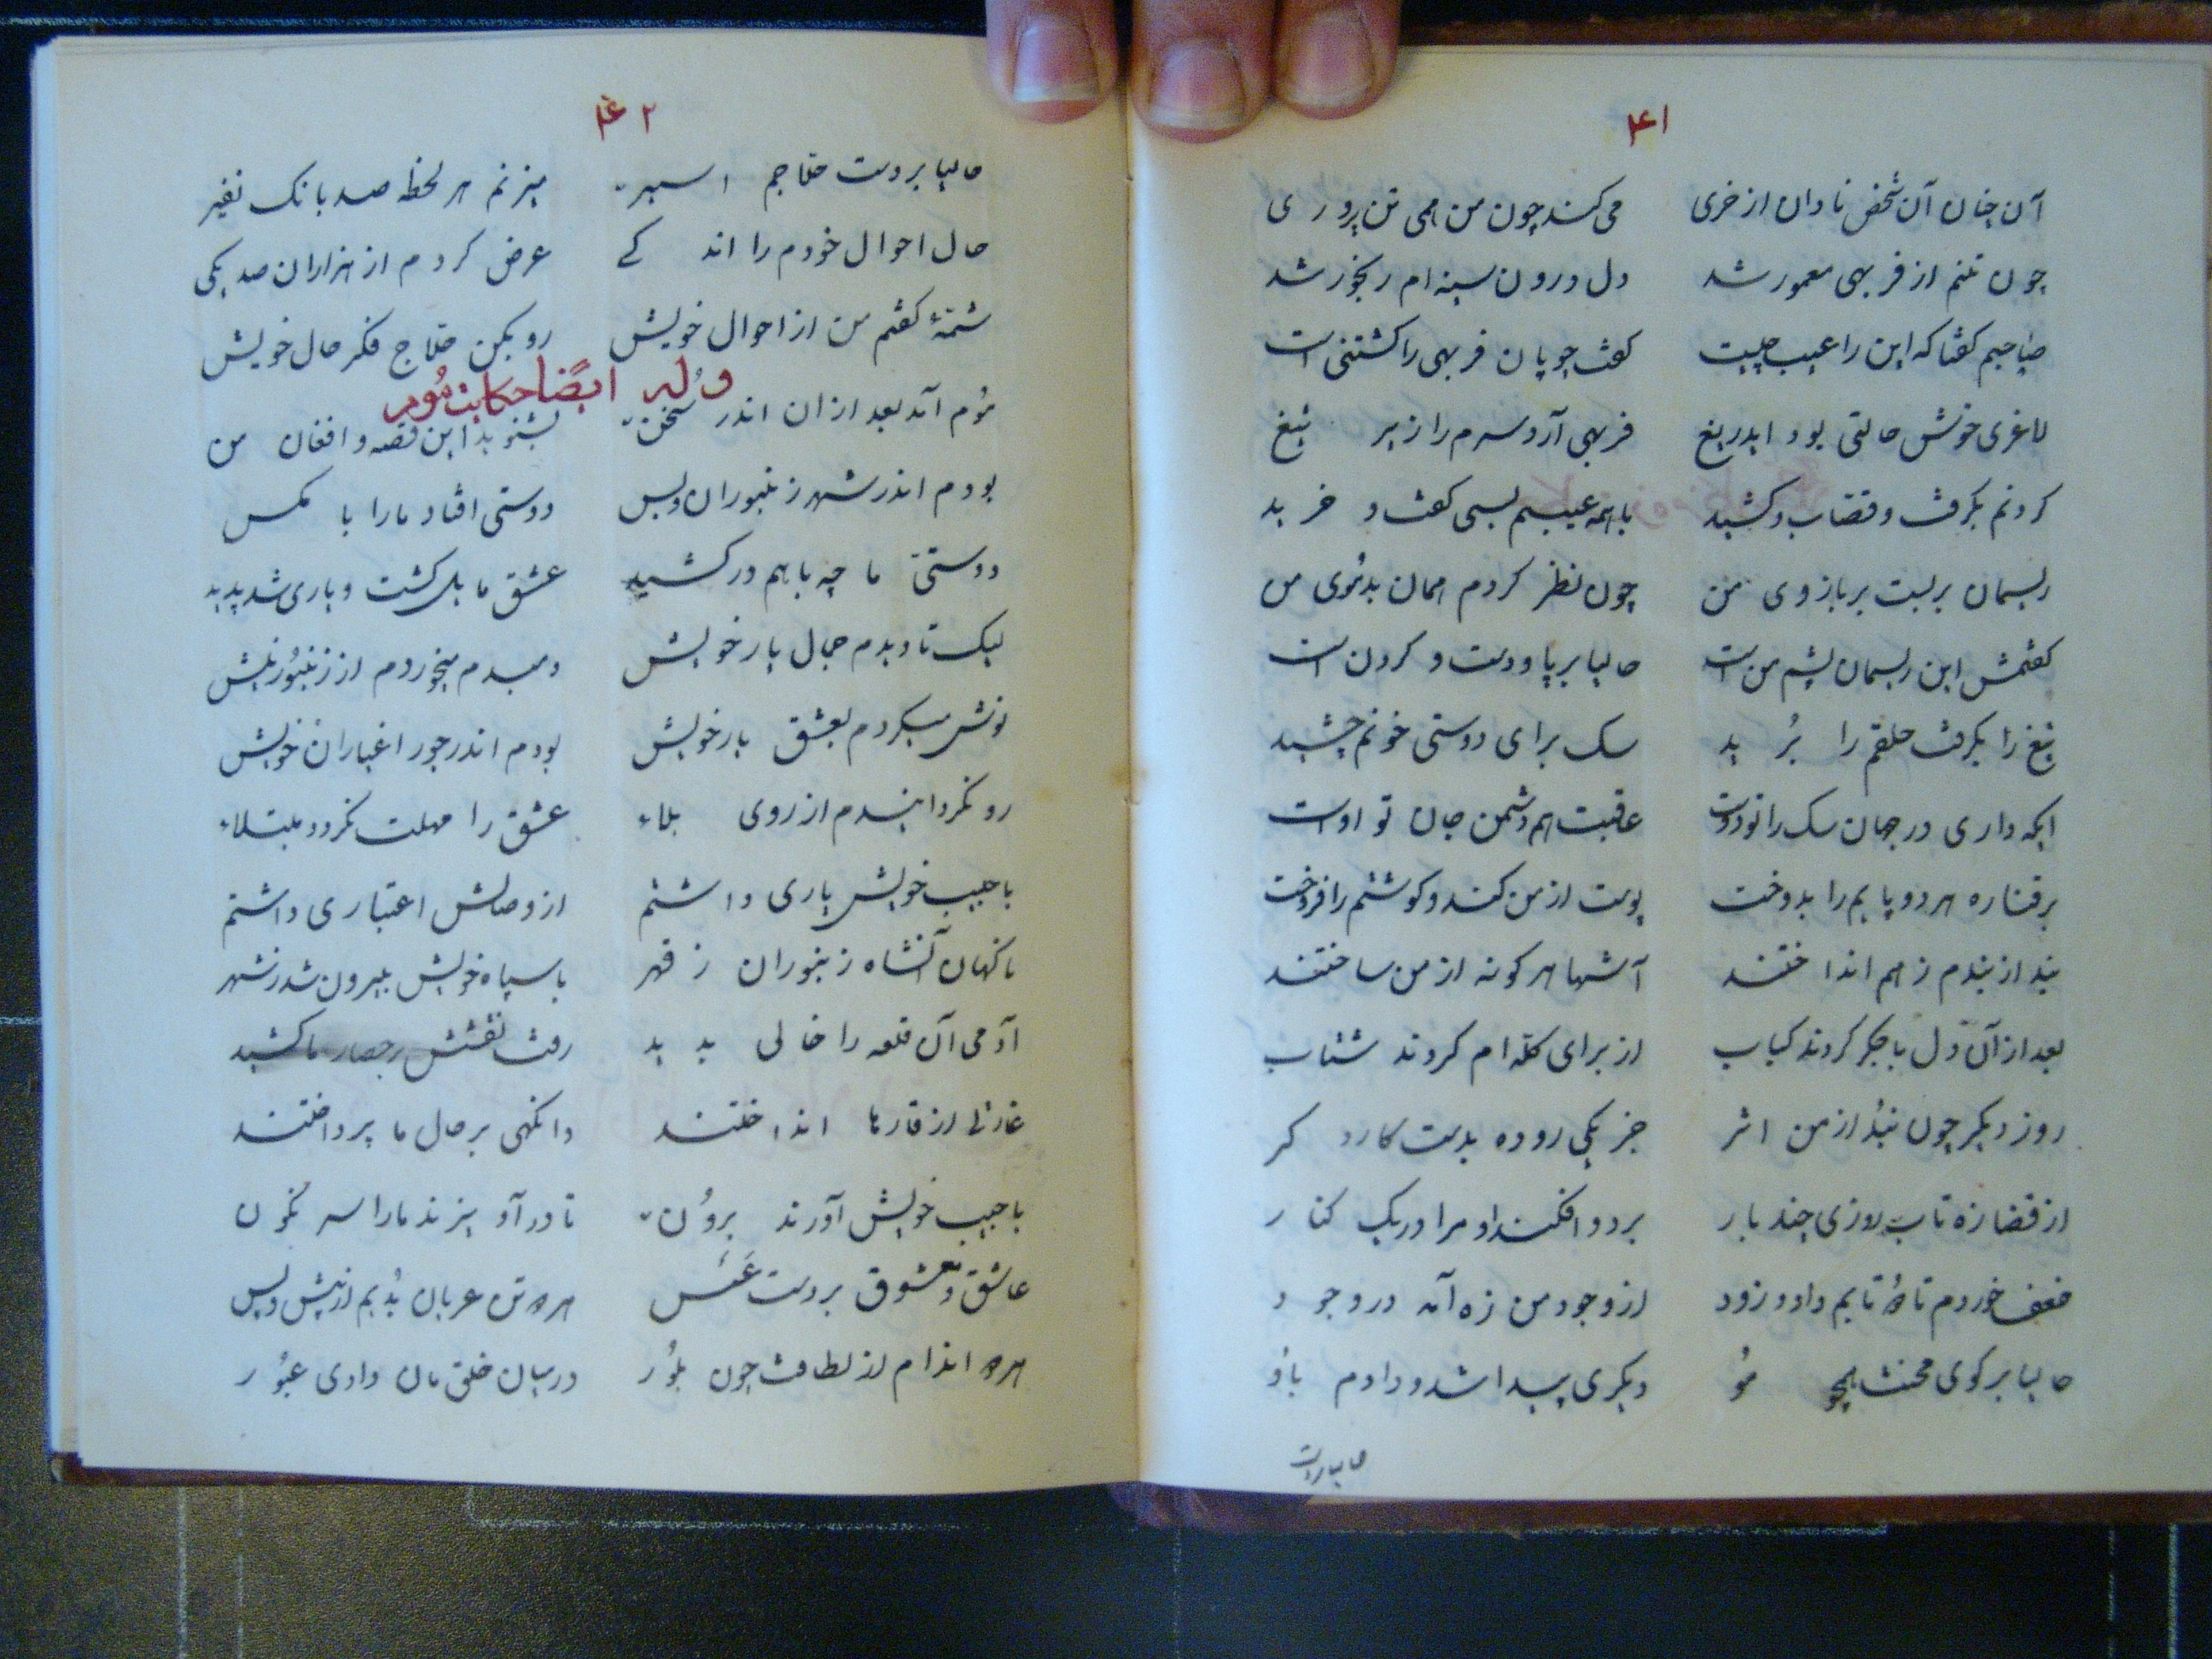 ۴۱
آن چنان آن شخص نادان از خری می کند چون من همی تن پروری
چون تنم از فربهی معمور شد دل درون سینه ام رنجور شد
صاحبم گفتا که این را عیب چیست گفت چوپان فربهی را کشتنی است
لاغری خوش حالتی بود ایدریغ فربهی آرد سرم را زیر تیغ
گردنم بگرفت و قصاب و کشید با همه عیبم بسی گفت و خرید
ریسمان بربست بر بازوی من چون نظر کردم همان بد موی من
گفتمش این ریسمان پشم من است حالیا بر پا و دست و گردن است
تیغ را بگرفت حلقم را برید سک برای دوستی خونم چشید
ایکه داری در جهان سک را تو دوست عاقبت هم دشمن جان تو اوست
بر قناره هر دو پایم را بدوخت پوست از من کند و گوشتم را فروخت
بند از بندم ز هم انداختند آشها هر گونه از من ساختند
بعد از آن دل با جگر کردند کباب از برای کله ام کردند شتاب
روز دیگر چون نبد از من اثر جز یکی روده بدست کارد گر
از قضا زه تاب روزی چند بار برد و افکند او مرا در یک کنار
ضعف خوردم تا تابم داد و زود از وجود من زه آمد در وجود
حالیا بر کوی محنت همچو مو دیگری پیدا شد و دادم باو
حالیا بردست
۴۲
حالیا بر دست حلاجم اسیر میزنم هر لحظه صد بانک نفیر
حال احوال خودم را اندکے عرض کردم از هزاران صد یکی
شمهٔ گفتم من از احوال خویش رو بکن حلاج فکر حال خویش
وله ایضًا حکایت موم
موم آمد بعد از ان اندر سخن بشنوید این قصه و افغان من
بودم اندر شهر زنبوران و بس دوستی افتاد ما را با مگس
دوستیٔ ما چه با هم در کشید عشق ما بل گشت و یاری شد پدید
لیک تا دیدم جمال یار خویش دمبدم میخوردم از زنبور نیش
نوش میکردم بعشق یار خویش بودم اندر جور اغیاران خویش
رو نگردانیدم از روی بلاء عشق را مهلت نگردد مبتلاء
با حبیب خویش یاری داشتم از وصالش اعتباری داشتم
ناگهان آنشاه زنبوران ز قهر با سپاه خویش بیرون شد ز شهر
آدمی آن قلعه را خالی بدید رفت نقشش بر حصار ما کشید
غارتی از قارها انداختند وانگهی بر حال ما پرداختند
با حبیب خویش آورند برون تا در آویزند ما را سر نگون
عاشق و معشوق بر دست عسس هر دو تن عریان بدیم از پیش و پس
هر دو اندام از لطافت چون بلور در میان خلق مان دادی عبور